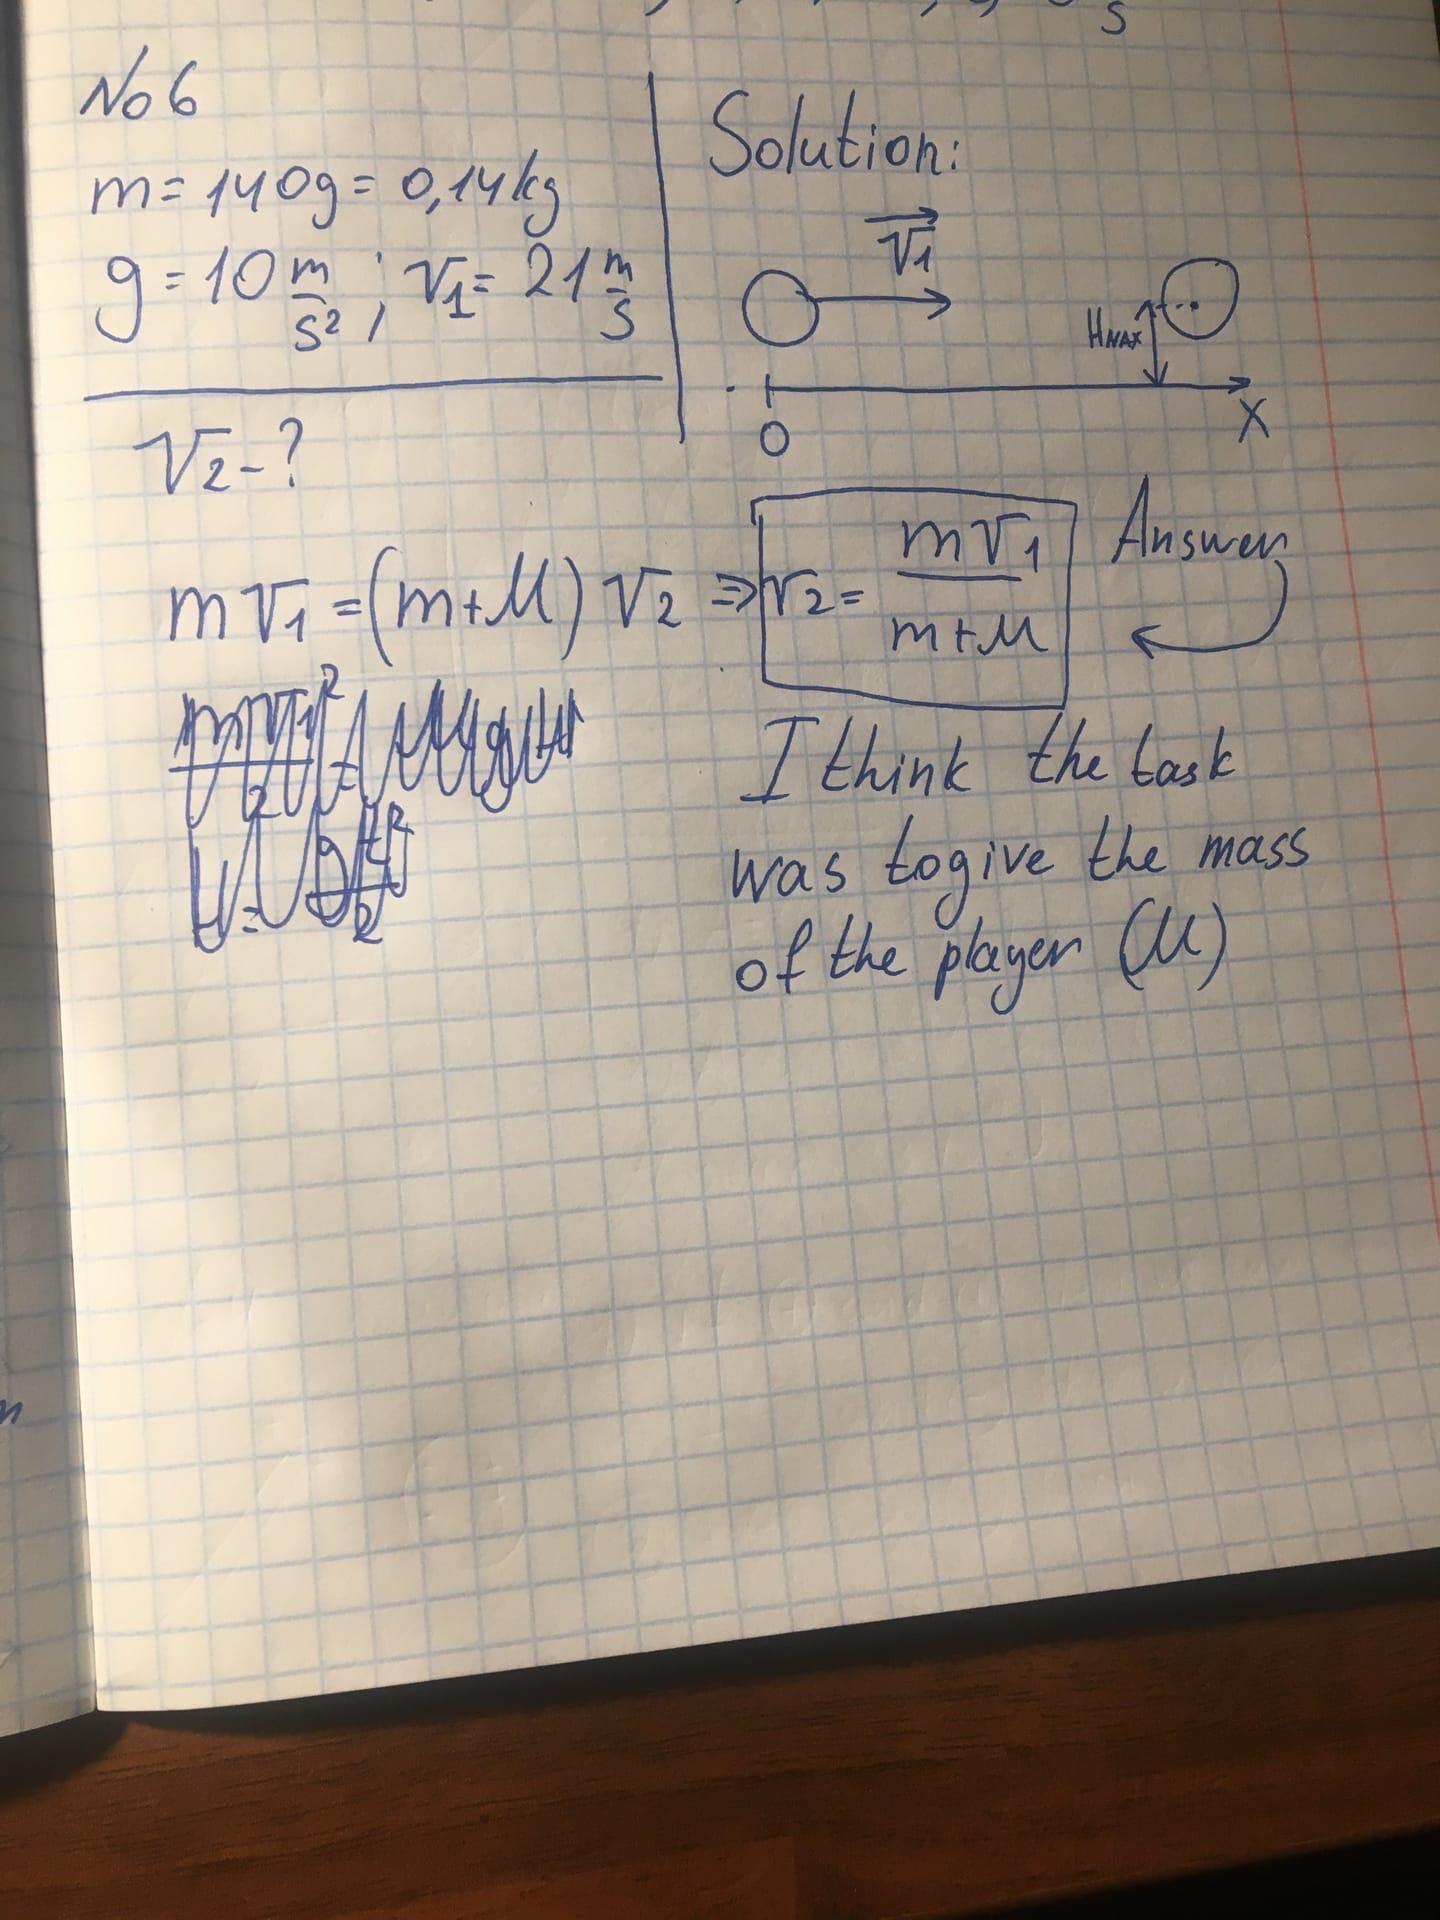 s
No 6
m = 140g = 0,14kg
g = 10 m/s² ; v₁ = 21 m/s
v₂ - ?
Solution:
v₁
Hmax
O
X
m v₁ = (m+M) v₂ ⇒ v₂ = mv₁/m+M
Answer
I think the task
was to give the mass
of the player (M)